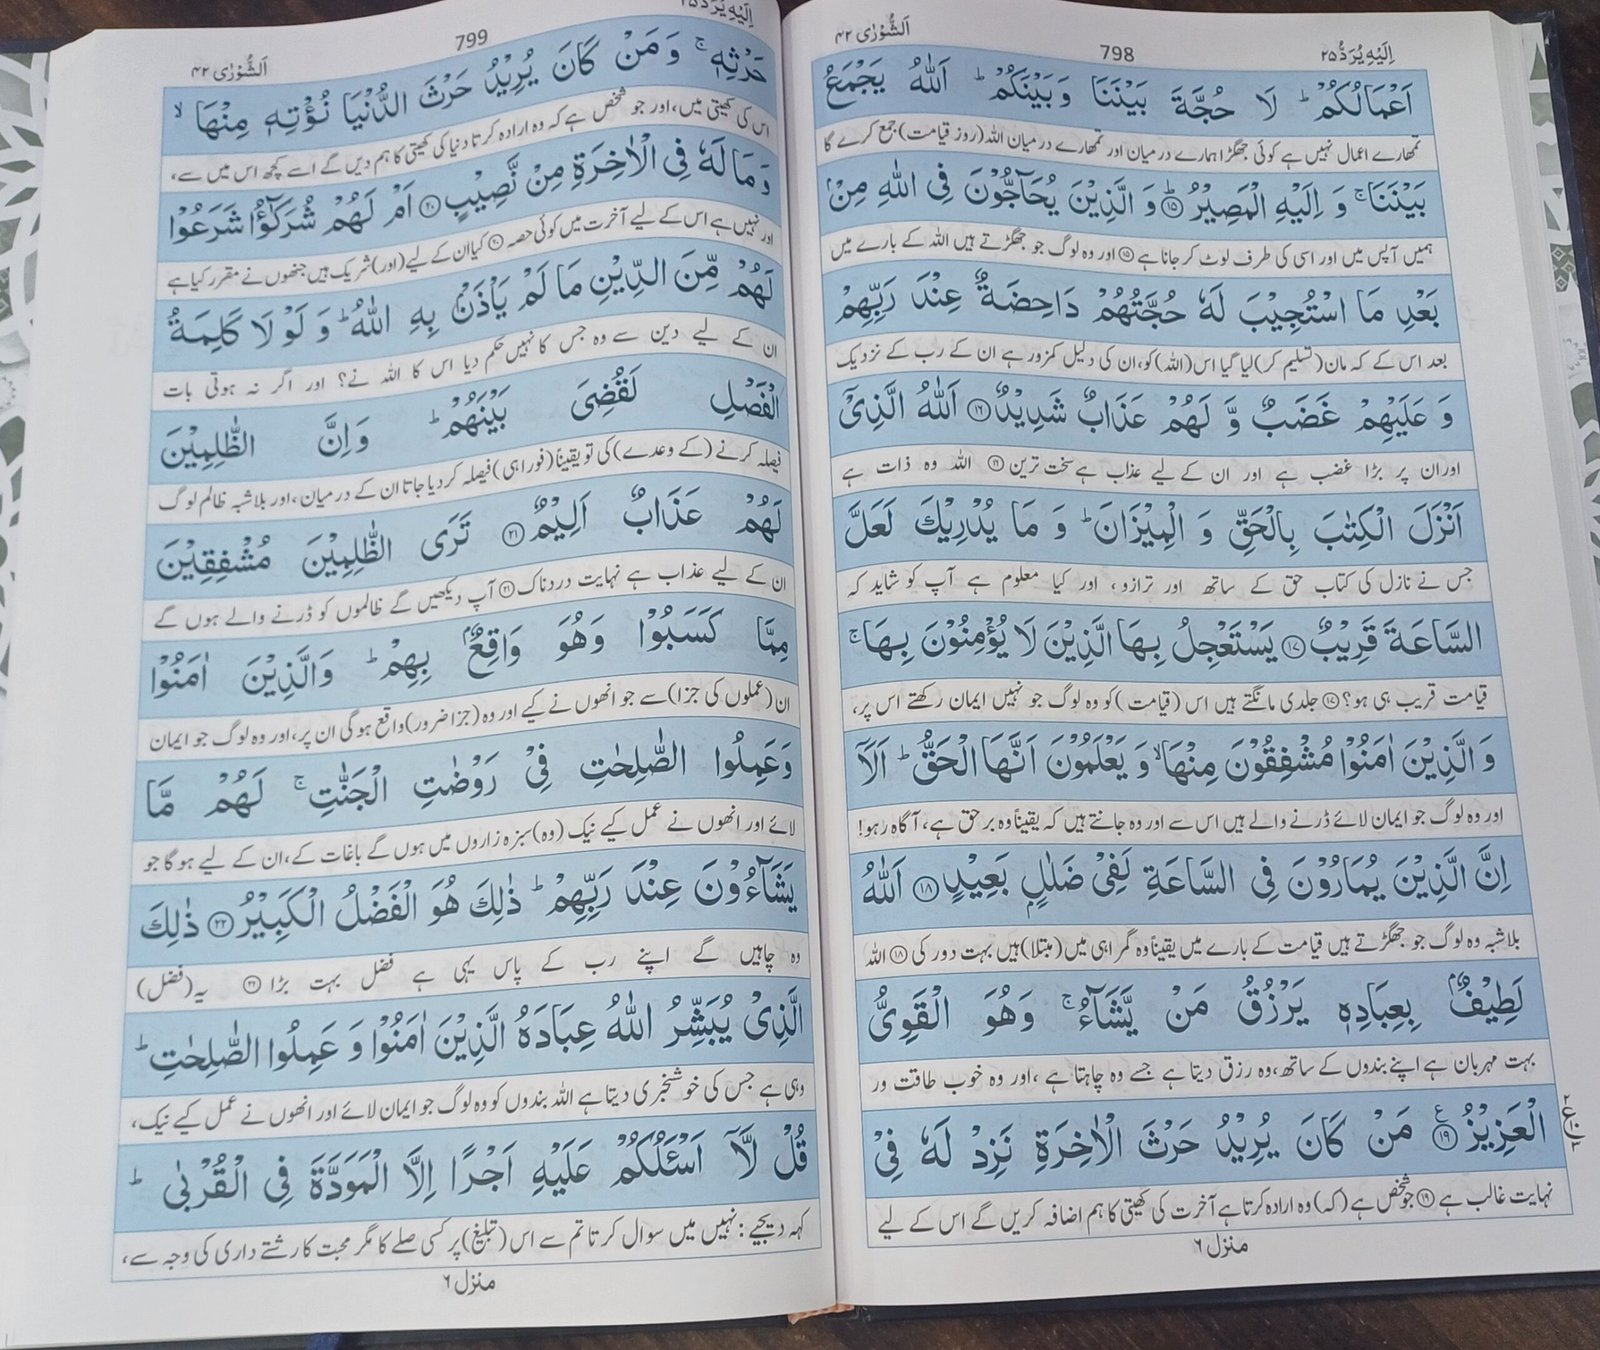 اِلَیْهِ یُرَدُّ ۲۵
798
اَلشُّوْرٰی ۴۲
اَعْمَالُكُمْ ؕ لَا حُجَّةَ بَیْنَنَا وَ بَیْنَكُمْ ؕ اَللّٰهُ یَجْمَعُ
تمھارے اعمال نہیں ہے کوئی جھگڑا ہمارے درمیان اور تمھارے درمیان اللہ (روز قیامت) جمع کرے گا
بَیْنَنَا ۚ وَ اِلَیْهِ الْمَصِیْرُ ؕ۝۱۵ وَ الَّذِیْنَ یُحَآجُّوْنَ فِی اللّٰهِ مِنْۢ
ہمیں آپس میں اور اسی کی طرف لوٹ کر جانا ہے ۝۱۵ اور وہ لوگ جو جھگڑتے ہیں اللہ کے بارے میں
بَعْدِ مَا اسْتُجِیْبَ لَهٗ حُجَّتُهُمْ دَاحِضَةٌ عِنْدَ رَبِّهِمْ
بعد اس کے کہ مان (تسلیم کر) لیا گیا اس (اللہ) کو، ان کی دلیل کمزور ہے ان کے رب کے نزدیک
وَ عَلَیْهِمْ غَضَبٌ وَّ لَهُمْ عَذَابٌ شَدِیْدٌ ۝۱۶ اَللّٰهُ الَّذِیْۤ
اور ان پر بڑا غضب ہے اور ان کے لیے عذاب ہے سخت ترین ۝۱۶ اللہ وہ ذات ہے
اَنْزَلَ الْكِتٰبَ بِالْحَقِّ وَ الْمِیْزَانَ ؕ وَ مَا یُدْرِیْكَ لَعَلَّ
جس نے نازل کی کتاب حق کے ساتھ اور ترازو، اور کیا معلوم ہے آپ کو شاید کہ
السَّاعَةَ قَرِیْبٌ ۝۱۷ یَسْتَعْجِلُ بِهَا الَّذِیْنَ لَا یُؤْمِنُوْنَ بِهَا ۚ
قیامت قریب ہی ہو؟ ۝۱۷ جلدی مانگتے ہیں اس (قیامت) کو وہ لوگ جو نہیں ایمان رکھتے اس پر،
وَ الَّذِیْنَ اٰمَنُوْا مُشْفِقُوْنَ مِنْهَا ۙ وَ یَعْلَمُوْنَ اَنَّهَا الْحَقُّ ؕ اَلَاۤ
اور وہ لوگ جو ایمان لائے ڈرنے والے ہیں اس سے اور وہ جانتے ہیں کہ یقیناً وہ برحق ہے، آگاہ رہو!
اِنَّ الَّذِیْنَ یُمَارُوْنَ فِی السَّاعَةِ لَفِیْ ضَلٰلٍۭ بَعِیْدٍ ۝۱۸ اَللّٰهُ
بلاشبہ وہ لوگ جو جھگڑتے ہیں قیامت کے بارے میں یقیناً وہ گمراہی میں (مبتلا) ہیں بہت دور کی ۝۱۸ اللہ
لَطِیْفٌۢ بِعِبَادِهٖ یَرْزُقُ مَنْ یَّشَآءُ ۚ وَ هُوَ الْقَوِیُّ
بہت مہربان ہے اپنے بندوں کے ساتھ، وہ رزق دیتا ہے جسے وہ چاہتا ہے، اور وہ خوب طاقت ور
الْعَزِیْزُ ۝۱۹ مَنْ كَانَ یُرِیْدُ حَرْثَ الْاٰخِرَةِ نَزِدْ لَهٗ فِیْ
نہایت غالب ہے ۝۱۹ جو شخص ہے (کہ) وہ ارادہ کرتا ہے آخرت کی کھیتی کا ہم اضافہ کریں گے اس کے لیے
منزل ۶
اِلَیْهِ یُرَدُّ ۲۵
799
اَلشُّوْرٰی ۴۲
حَرْثِهٖ ۚ وَ مَنْ كَانَ یُرِیْدُ حَرْثَ الدُّنْیَا نُؤْتِهٖ مِنْهَا ۙ
اس کی کھیتی میں، اور جو شخص ہے کہ وہ ارادہ کرتا دنیا کی کھیتی کا ہم دیں گے اسے کچھ اس میں سے،
وَ مَا لَهٗ فِی الْاٰخِرَةِ مِنْ نَّصِیْبٍ ۝۲۰ اَمْ لَهُمْ شُرَكٰٓؤُا شَرَعُوْا
اور نہیں ہے اس کے لیے آخرت میں کوئی حصہ ۝۲۰ کیا ان کے لیے (اور) شریک ہیں جنھوں نے مقرر کیا ہے
لَهُمْ مِّنَ الدِّیْنِ مَا لَمْ یَاْذَنْۢ بِهِ اللّٰهُ ؕ وَ لَوْ لَا كَلِمَةُ
ان کے لیے دین سے وہ جس کا نہیں حکم دیا اس کا اللہ نے؟ اور اگر نہ ہوتی بات
الْفَصْلِ لَقُضِیَ بَیْنَهُمْ ؕ وَ اِنَّ الظّٰلِمِیْنَ
فیصلہ کرنے (کے وعدے) کی تو یقیناً (فورا ہی) فیصلہ کر دیا جاتا ان کے درمیان، اور بلاشبہ ظالم لوگ
لَهُمْ عَذَابٌ اَلِیْمٌ ۝۲۱ تَرَی الظّٰلِمِیْنَ مُشْفِقِیْنَ
ان کے لیے عذاب ہے نہایت دردناک ۝۲۱ آپ دیکھیں گے ظالموں کو ڈرنے والے ہوں گے
مِمَّا كَسَبُوْا وَ هُوَ وَاقِعٌۢ بِهِمْ ؕ وَ الَّذِیْنَ اٰمَنُوْا
ان (عملوں کی جزا) سے جو انھوں نے کیے اور وہ (جزا ضرور) واقع ہو گی ان پر، اور وہ لوگ جو ایمان
وَ عَمِلُوا الصّٰلِحٰتِ فِیْ رَوْضٰتِ الْجَنّٰتِ ۚ لَهُمْ مَّا
لائے اور انھوں نے عمل کیے نیک (وہ) سبزہ زاروں میں ہوں گے باغات کے، ان کے لیے ہو گا جو
یَشَآءُوْنَ عِنْدَ رَبِّهِمْ ؕ ذٰلِكَ هُوَ الْفَضْلُ الْكَبِیْرُ ۝۲۲ ذٰلِكَ
وہ چاہیں گے اپنے رب کے پاس یہی ہے فضل بہت بڑا ۝۲۲ یہ (فضل)
الَّذِیْ یُبَشِّرُ اللّٰهُ عِبَادَهُ الَّذِیْنَ اٰمَنُوْا وَ عَمِلُوا الصّٰلِحٰتِ ؕ
وہی ہے جس کی خوشخبری دیتا ہے اللہ بندوں کو وہ لوگ جو ایمان لائے اور انھوں نے عمل کیے نیک،
قُلْ لَّاۤ اَسْـَٔلُكُمْ عَلَیْهِ اَجْرًا اِلَّا الْمَوَدَّةَ فِی الْقُرْبٰی ؕ
کہہ دیجیے: نہیں میں سوال کرتا تم سے اس (تبلیغ) پر کسی صلے کا مگر محبت کا رشتے داری کی وجہ سے،
منزل ۶